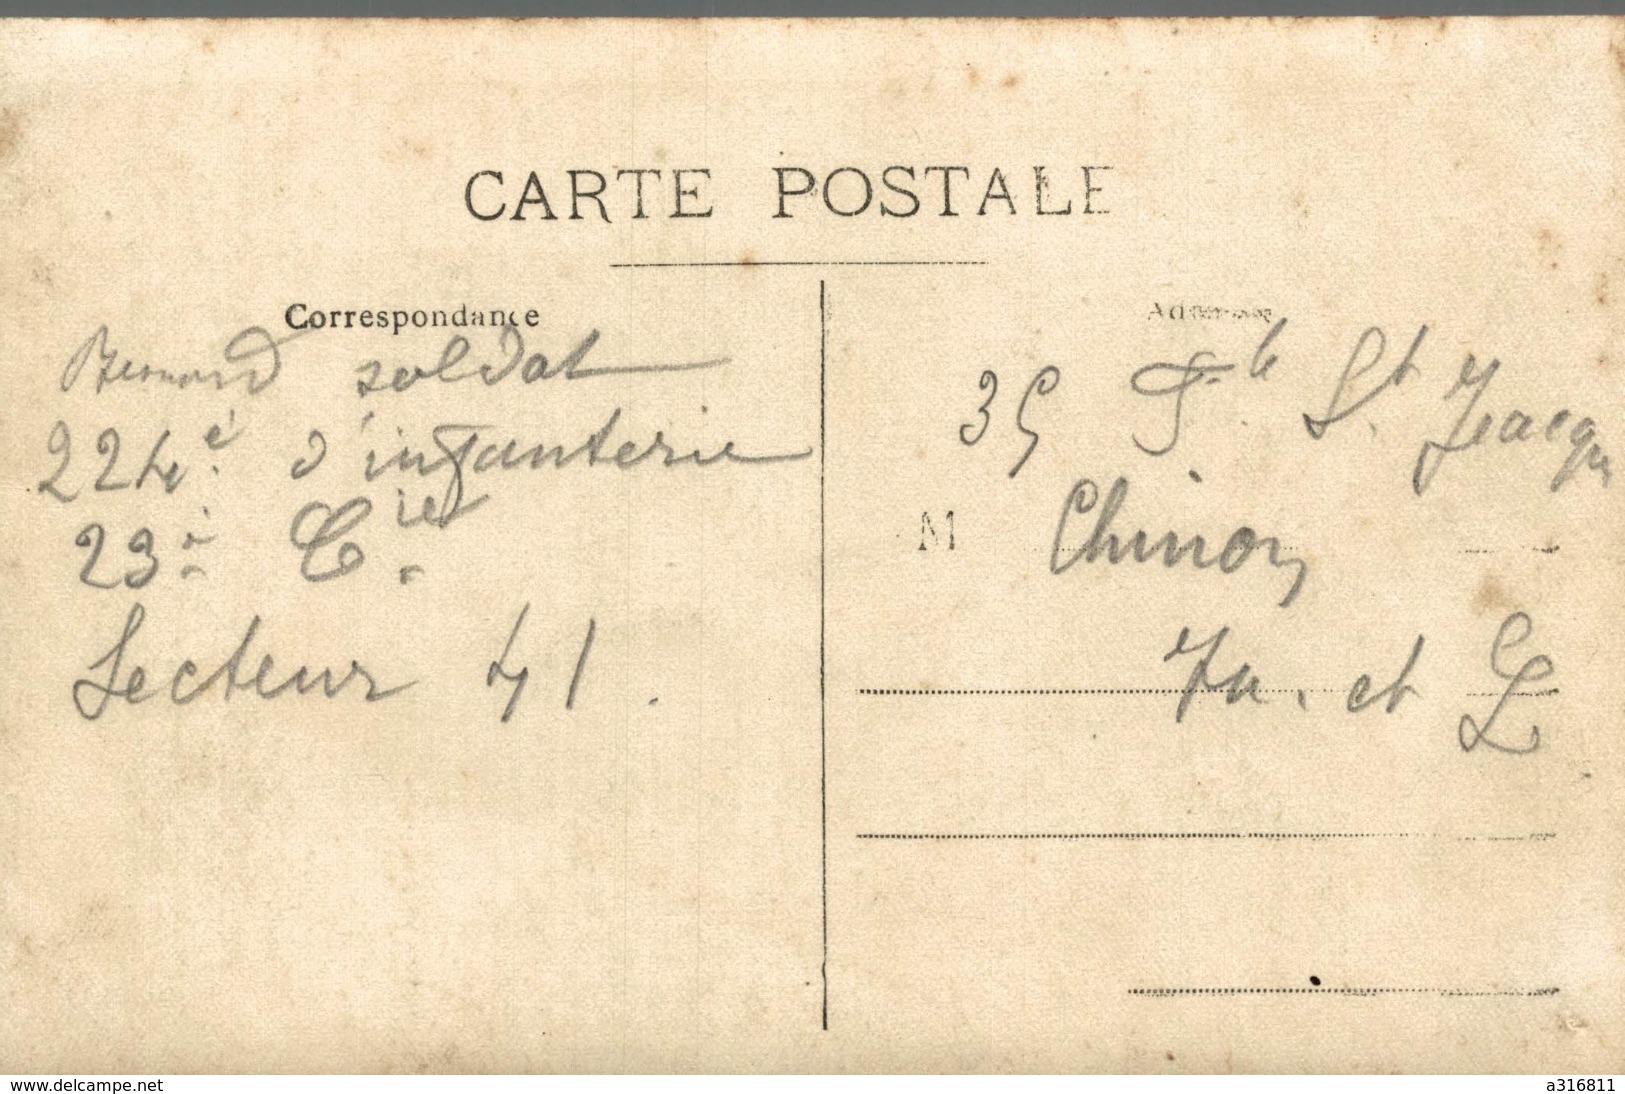 CARTE POSTALE
Correspondance
Bernard soldat
224è. d'infanterie
23è Cie
Secteur 41.
Adresse
35 Fg. St. Jacques
M Chinon
In. et L
www.delcampe.net
a316811